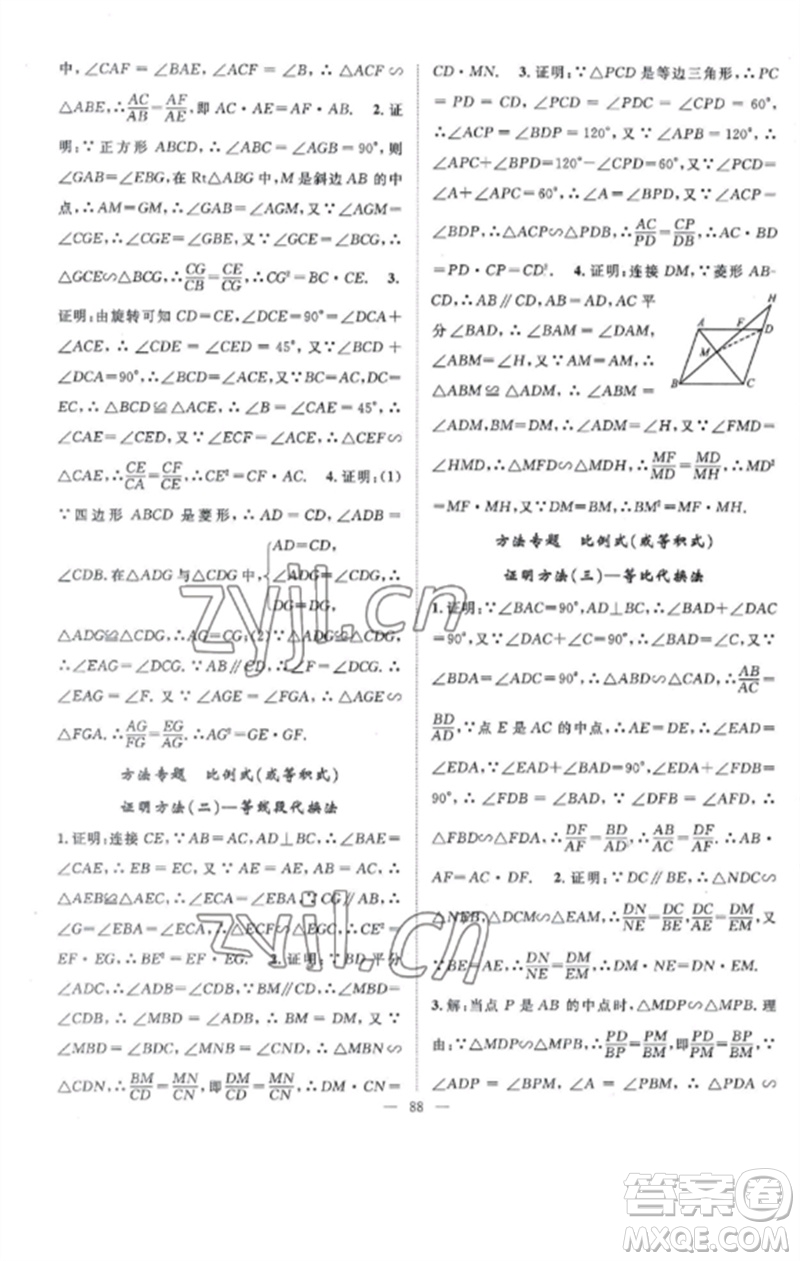 中,∠CAF=∠BAE,∠ACF=∠B,∴△ACF∽
△ABE,∴AC/AB=AF/AE,即 AC·AE=AF·AB. 2.证
明:∵正方形 ABCD,∴∠ABC=∠AGB=90°,则
∠GAB=∠EBG,在 Rt△ABG 中,M 是斜边 AB 的中
点,∴AM=GM,∴∠GAB=∠AGM,又∵∠AGM=
∠CGE,∴∠CGE=∠GBE,又∵∠GCE=∠BCG,
∴△GCE∽△BCG,∴CG/CB=CE/CG,∴CG²=BC·CE. 3.
证明:由旋转可知 CD=CE,∠DCE=90°=∠DCA+
∠ACE,∴∠CDE=∠CED=45°,又∵∠BCD+
∠DCA=90°,∴∠BCD=∠ACE,又∵BC=AC,DC=
EC,∴△BCD≌△ACE,∴∠B=∠CAE=45°,∴
∠CAE=∠CED,又∵∠ECF=∠ACE,∴△CEF∽
△CAE,∴CE/CA=CF/CE,∴CE²=CF·AC. 4.证明:(1)
∵四边形 ABCD 是菱形,∴AD=CD,∠ADB=
∠CDB.在△ADG 与△CDG 中,{AD=CD,
∠ADG=∠CDG,
DG=DG,
△ADG≌△CDG,∴AG=CG;(2)∵△ADG≌△CDG,
∴∠EAG=∠DCG.∵AB∥CD,∴∠F=∠DCG.∴
∠EAG=∠F.又∵∠AGE=∠FGA,∴△AGE∽
△FGA.∴AG/FG=EG/AG.∴AG²=GE·GF.
方法专题 比例式(或等积式)
证明方法(二)—等线段代换法
1.证明:连接 CE,∵AB=AC,AD⊥BC,∴∠BAE=
∠CAE,∴EB=EC,又∵AB=AC,AE=AE,∴
△AEB≌△AEC,∴∠ECA=∠EBA,∵CG∥AB,∴
∠G=∠EBA=∠ECA,∴△EFC∽△ECG,∴CE²=
EF·EG,∴BE²=EF·EG. 2.证明:∵BD 平分
∠ADC,∴∠ADB=∠CDB,∵CD∥BM,∴∠MBD=
∠CDB,∴∠MBD=∠ADB,∴DM=BM,又∵
∠MBD=∠BDC,∠MNB=∠CND,∴△MBN∽
△CDN,∴BM/CD=MN/CN,即DM/CD=MN/CN,∴DM·CN=
CD·MN. 3.证明:∵△PCD 是等边三角形,∴PC
=PD=CD,∠PCD=∠PDC=∠CPD=60°,
∴∠ACP=∠BDP=120°,又∵∠APB=120°,∴
∠APC+∠BPD=60°,又∵∠PCD=
∠A+∠APC=60°,∴∠A=∠BPD,又∵∠ACP=
∠BDP,∴△ACP∽△PDB,∴AC/PD=CP/DB,∴AC·BD
=PD·CP=CD². 4.证明:连接 DM,∵菱形 AB-
CD,∴AB∥CD,AB=AD,AC 平
分∠BAD,∴∠BAM=∠DAM,
∠ABM=∠H,又∵AM=AM,∴
△ABM≌△ADM,∴∠ABM=
∠ADM,BM=DM,∴∠ADM=∠H,又∵∠FMD=
∠HMD,∴△MDF∽△MDH,∴MF/MD=MD/MH,∴MD²
=MF·MH,又∵DM=BM,∴BM²=MF·MH.
A F D H M B C
方法专题 比例式(或等积式)
证明方法(三)—等比代换法
1.证明:∵∠BAC=90°,AD⊥BC,∴∠BAD+∠DAC
=90°,又∵∠DAC+∠C=90°,∴∠BAD=∠C,又∵
∠BDA=∠ADC=90°,∴△ABD∽△CAD,∴AB/AC=
BD/AD,∵点 E 是 AC 的中点,∴AE=DE,∴∠EAD=
∠EDA,又∵∠EAD+∠BAD=90°,∠FDB+∠EDA
=90°,∴∠FDB=∠BAD,又∵∠DFB=∠AFD,∴
△FBD∽△FDA,∴DF/AF=BD/AD,∴AB/AC=DF/AF,∴AB·
AF=AC·DF. 2.证明:∵DC∥BE,∴△NDC∽
△NEB,△DCM∽△EAM,∴DN/NE=DC/BE,DC/AE=DM/EM,又
∵BE=AE,∴DN/NE=DM/EM,即DN/DM=NE/EM.
3.解:当点 P 是 AB 的中点时,△MDP∽△MPB.理
由:∵△MDP∽△MPB,∴PD/BP=PM/BM,即PD/PM=BP/BM,∵
∠ADP=∠BPM,∠A=∠PBM,∴△PAD∽
— 88 —
zyjl.cn
zyjl.cn
答案卷
MXQE.COM